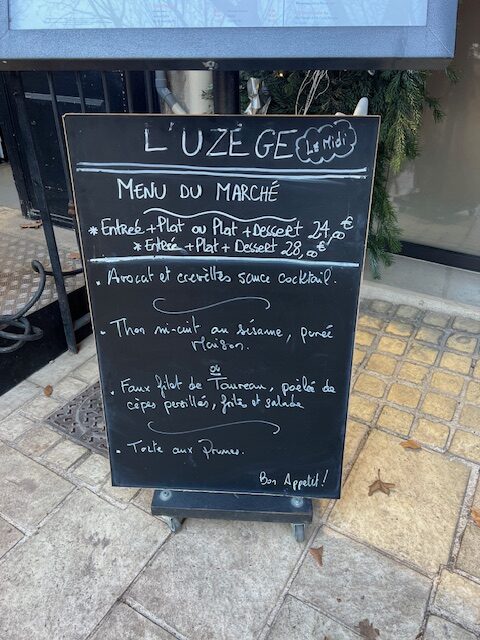 L'UZÈGE Le Midi
MENU DU MARCHÉ
* Entrée + Plat ou Plat + Dessert 24,00€
* Entrée + Plat + Dessert 28,00€
. Avocat et crevettes sauce cocktail.
. Thon mi-cuit au sésame, purée
Maison.
ou
. Faux filet de Taureau, poêlée de
cèpes persillés, frites et salade
. Tarte aux Prunes.
Bon Appetit!